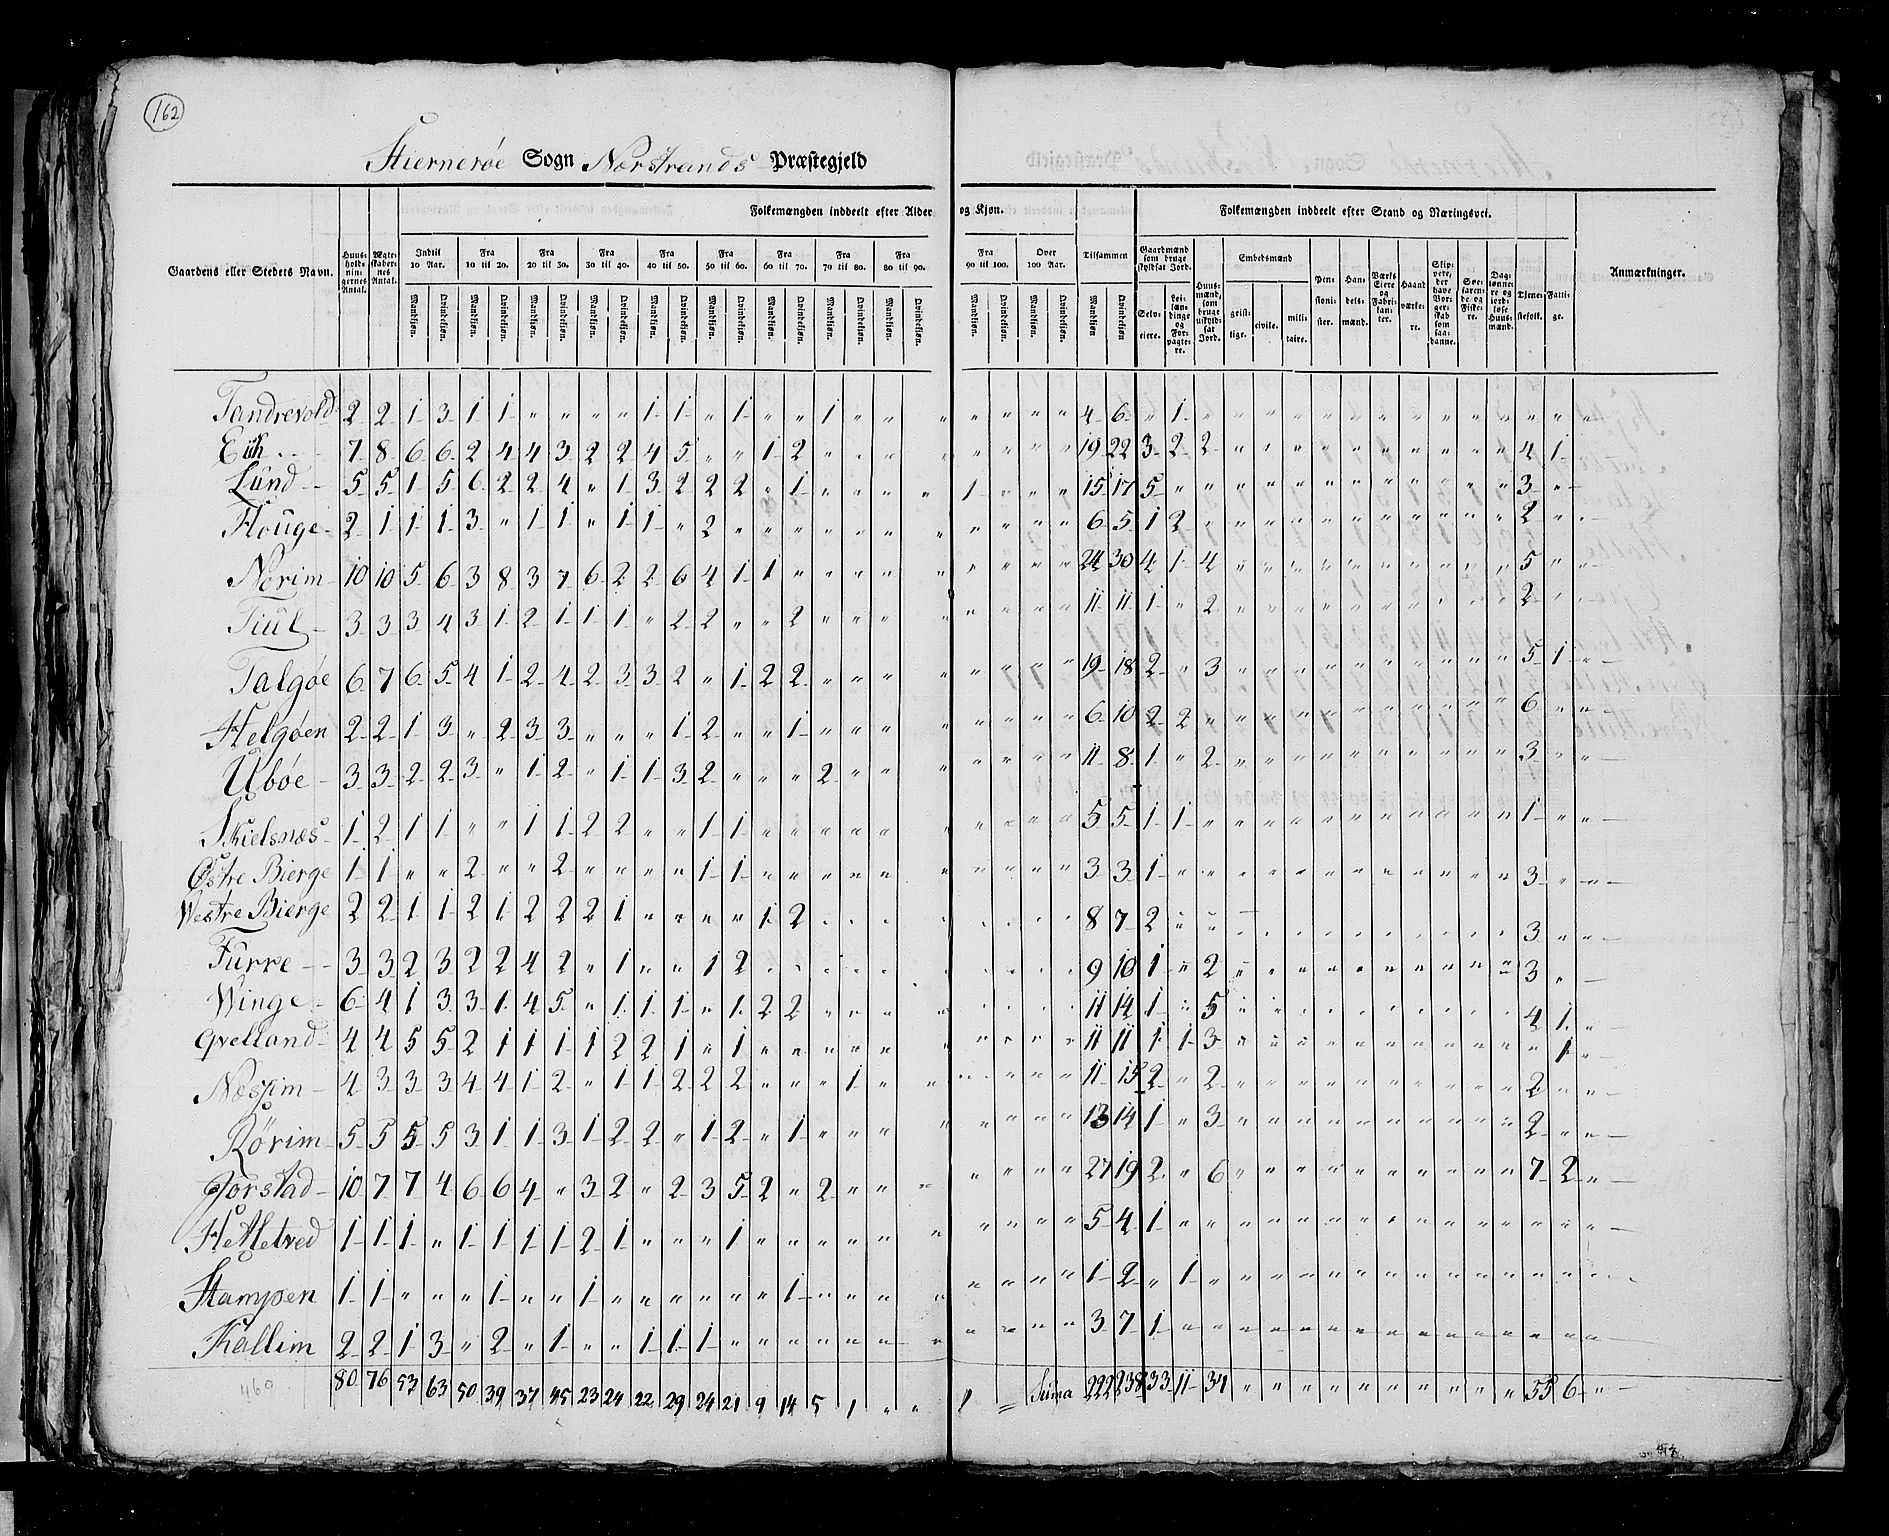 162
Stiernerøe Sogn Nærstrands Præstegjeld
Folkemængden inddeelt efter Alder og Kjøn. Folkemængden inddeelt efter Stand og Næringsvei.
Gaardens eller Stedets Navn. Huusholdningernes Antal. Ægteskabernes Antal. Indtil 10 Aar. Fra 10 til 20. Fra 20 til 30. Fra 30 til 40. Fra 40 til 50. Fra 50 til 60. Fra 60 til 70. Fra 70 til 80. Fra 80 til 90. Fra 90 til 100. Over 100 Aar. Tilsammen Gaardmænd som bruge skyldsat Jord. Huusmænd, som bruge uskyldsat Jord. Embedsmænd Pensionister. Handelsmænd. Værks Eiere og Fabrikanter. Haandværkere. Skippere, der have Borgerskab som saadanne. Søefarende og Fiskere. Daglønnere og jordløse Huusmænd. Tjenestefolk. Fattige. Anmærkninger.
Mandkjøn. Qvindekjøn. Mandkjøn. Qvindekjøn. Mandkjøn. Qvindekjøn. Mandkjøn. Qvindekjøn. Mandkjøn. Qvindekjøn. Mandkjøn. Qvindekjøn. Mandkjøn. Qvindekjøn. Mandkjøn. Qvindekjøn. Mandkjøn. Qvindekjøn. Mandkjøn. Qvindekjøn. Mandkjøn. Qvindekjøn. Mandkjøn. Qvindekjøn Selveiere. Leilændinge og Forpagtere. geistlige. civile. militaire.
Tandrevold 2 2 1 3 1 1 " " " " 1 1 " 1 " " 1 " " " " " " " 4 6 " 1 " " " " " " " " " " " " "
Eiik 7 8 6 6 2 4 4 3 2 2 4 5 " " 1 2 " " " " " " " " 19 22 3 2 2 " " " " " " " " " " 4 1
Lund 5 5 1 5 6 2 2 4 " 1 3 2 2 2 " 1 " " " " 1 " " " 15 17 5 " " " " " " " " " " " " 3 "
Houge 2 1 1 1 3 " 1 1 " 1 1 " 2 " " " " " " " " " " " 6 5 1 2 " " " " " " " " " " " 2 "
Norim 10 10 5 6 3 8 3 7 6 2 2 6 4 1 1 " " " " " " " " " 24 30 4 1 4 " " " " " " " " " " 5 "
Tiul 3 3 3 4 3 1 2 1 1 1 " 2 2 " " 2 " " " " " " " " 11 11 1 " 2 " " " " " " " " " " 2 "
Talgøe 6 7 6 5 4 1 2 4 2 3 3 2 " 1 2 2 " " " " " " " " 19 18 2 " 3 " " " " " " " " " " 5 1
Helgøen 2 2 1 3 " 2 3 3 " " " 1 2 " " 1 " " " " " " " " 6 10 2 2 " " " " " " " " " " " 6 "
Ubøe 3 3 2 2 3 " 1 2 " 1 1 3 2 " " " 2 " " " " " " " 11 8 1 " 2 " " " " " " " " " " 3 "
Skielsnæs 1 2 1 1 " " 1 1 2 2 " " 1 1 " " " " " " " " " " 5 5 1 1 " " " " " " " " " " " 1 "
Østre Bierge 1 1 " " 2 " " 2 " " " " 1 1 " " " " " " " " " " 3 3 1 " " " " " " " " " " " " 3 "
Westre Bierge 2 2 1 1 2 1 2 2 2 1 " " " " 1 2 " " " " " " " " 8 7 2 " " " " " " " " " " " " 3 "
Furre 3 3 2 3 2 2 4 2 " 1 " " 1 2 " " " " " " " " " " 9 10 1 " 2 " " " " " " " " " " 3 "
Winge 6 4 1 3 3 1 4 5 " 1 1 1 " 1 2 2 " " " " " " " " 11 14 1 " 5 " " " " " " " " " " 4 1
Qvelland 4 4 5 5 2 1 1 1 1 2 2 1 " 1 " " " " " " " " " " 11 11 1 1 3 " " " " " " " " " " " 1
Nessim 4 3 3 3 4 4 1 2 " 1 1 2 2 2 " " " 1 " " " " " " 11 15 2 " 2 " " " " " " " " " " 2 "
Rørim 5 5 5 5 3 1 1 3 1 2 2 " 1 2 " 1 " " " " " " " " 13 14 1 " 3 " " " " " " " " " " 2 "
Jorstad 10 7 7 4 6 6 4 " 3 2 " 2 3 5 2 " 2 " " " " " " " 27 19 2 " 6 " " " " " " " " " " 7 2
Hetletved 1 1 1 " 1 1 1 1 2 1 " " " 1 " " " " " " " " " " 5 4 1 " " " " " " " " " " " " " "
Stampen 1 1 " " " 1 " " 1 " " " " " " 1 " " " " " " " " 1 2 " 1 " " " " " " " " " " " " "
Kallim 2 2 1 3 " 2 " 1 " " 1 1 1 " " " " " " " " " " " 3 7 1 " " " " " " " " " " " " " "
460 80 76 53 63 50 39 37 45 23 24 22 29 24 21 9 14 5 1 " " 1 " Suma 222 238 33 11 34 " " " " " " " " " " 55 6